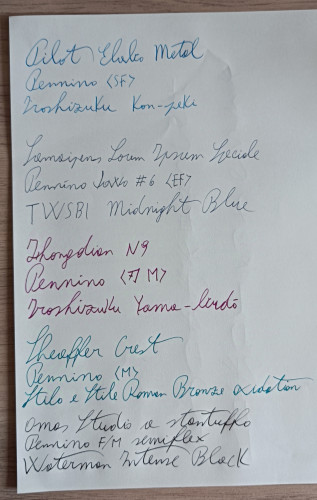 Pilot Elabo Metal
Pennino <SF>
Iroshizuku Kon-peki
Lorem Ipsum
Pennino JoWo #6 <EF>
TWSBI Midnight Blue
Zhongdian N9
Pennino <F/M>
Iroshizuku Yama-budō
Sheaffer Crest
Pennino <M>
Stilo e Stile Roman Bronze oxidation
Omas Studio a stantuffo
Pennino F/M semiflex
Waterman Intense Black